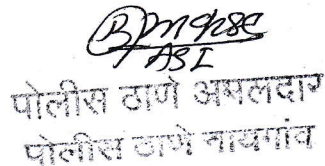 ASI
पोलीस ठाणे अंमलदार
पोलीस ठाणे नायगांव